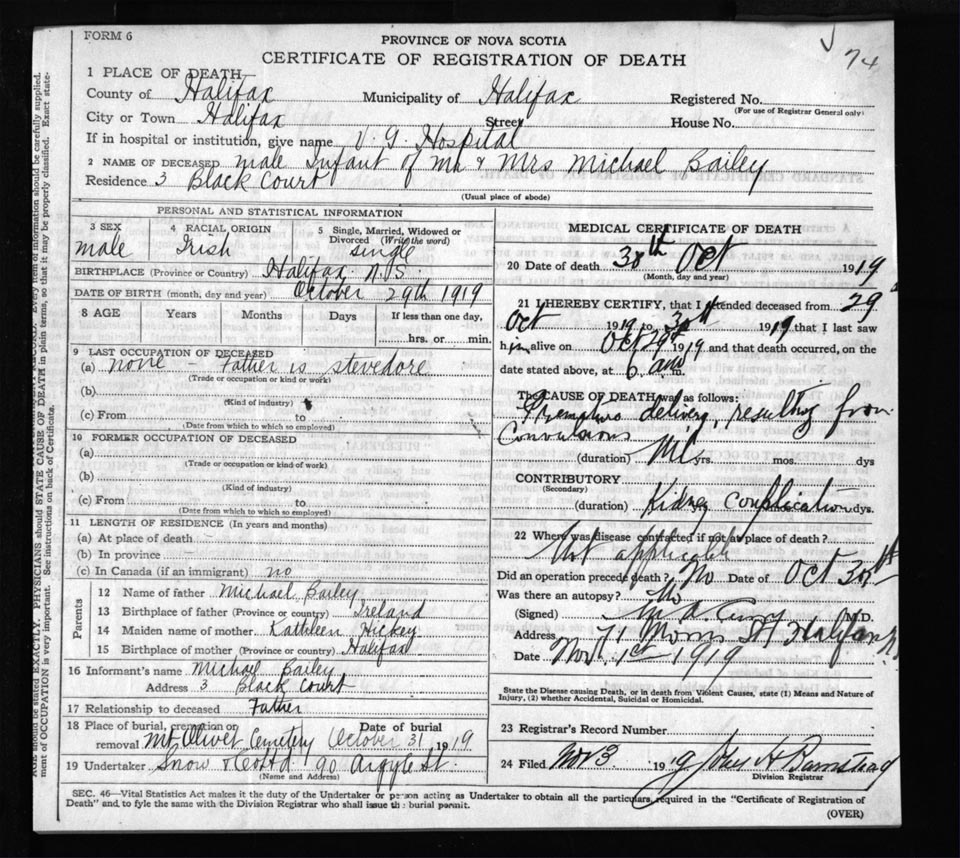 74
FORM 6
PROVINCE OF NOVA SCOTIA
CERTIFICATE OF REGISTRATION OF DEATH
1 PLACE OF DEATH
County of Halifax Municipality of Halifax Registered No.
(For use of Registrar General only)
City or Town Halifax Street House No.
If in hospital or institution, give name V. G. Hospital
2 NAME OF DECEASED male Infant of Mr & Mrs Michael Bailey
Residence 3 Black Court
(Usual place of abode)
PERSONAL AND STATISTICAL INFORMATION
3 SEX 4 RACIAL ORIGIN 5 Single, Married, Widowed or
Divorced (Write the word)
male Irish single
BIRTHPLACE (Province or Country) Halifax N.S.
DATE OF BIRTH (month, day and year) October 29th 1919
8 AGE Years Months Days If less than one day,
hrs. or min.
9 LAST OCCUPATION OF DECEASED
(a) none - Father is stevedore
(Trade or occupation or kind or work)
(b)
(Kind of industry)
(c) From to
(Date from which to which so employed)
10 FORMER OCCUPATION OF DECEASED
(a)
(Trade or occupation or kind of work)
(b)
(Kind of industry)
(c) From to
(Date from which to which so employed)
11 LENGTH OF RESIDENCE (In years and months)
(a) At place of death
(b) In province
(c) In Canada (if an immigrant) no
Parents
12 Name of father Michael Bailey
13 Birthplace of father (Province or country) Ireland
14 Maiden name of mother Kathleen Hickey
15 Birthplace of mother (Province or country) Halifax
16 Informant's name Michael Bailey
Address 3 Black Court
17 Relationship to deceased Father
18 Place of burial, cremation or Date of burial
removal Mt Olivet Cemetery October 31 1919
19 Undertaker Snow & Co Ltd 90 Argyle St.
(Name and Address)
MEDICAL CERTIFICATE OF DEATH
20 Date of death 30th Oct 1919
(Month, day and year)
21 I HEREBY CERTIFY, that I attended deceased from 29
Oct 1919 to 1919 that I last saw
him alive on Oct 29th 1919 and that death occurred, on the
date stated above, at 6 am m.
The CAUSE OF DEATH was as follows:
delivery, resulting from
Convulsions
(duration) yrs. mos. dys
CONTRIBUTORY
(Secondary)
(duration) Kidney Complication dys.
22 Where was disease contracted if not at place of death?
Not applicable
Did an operation precede death? No Date of Oct 30th
Was there an autopsy? No
(Signed) M.D.
Address 71 Morris St Halifax
Date Nov. 1st 1919
State the Disease causing Death, or in death from Violent Causes, state (1) Means and Nature of
Injury, (2) whether Accidental, Suicidal or Homicidal.
23 Registrar's Record Number
24 Filed Nov 3 1919 John H Barnstead
Division Registrar
SEC. 46—Vital Statistics Act makes it the duty of the Undertaker or person acting as Undertaker to obtain all the particulars required in the "Certificate of Registration of
Death" and to fyle the same with the Division Registrar who shall issue the burial permit.
(OVER)